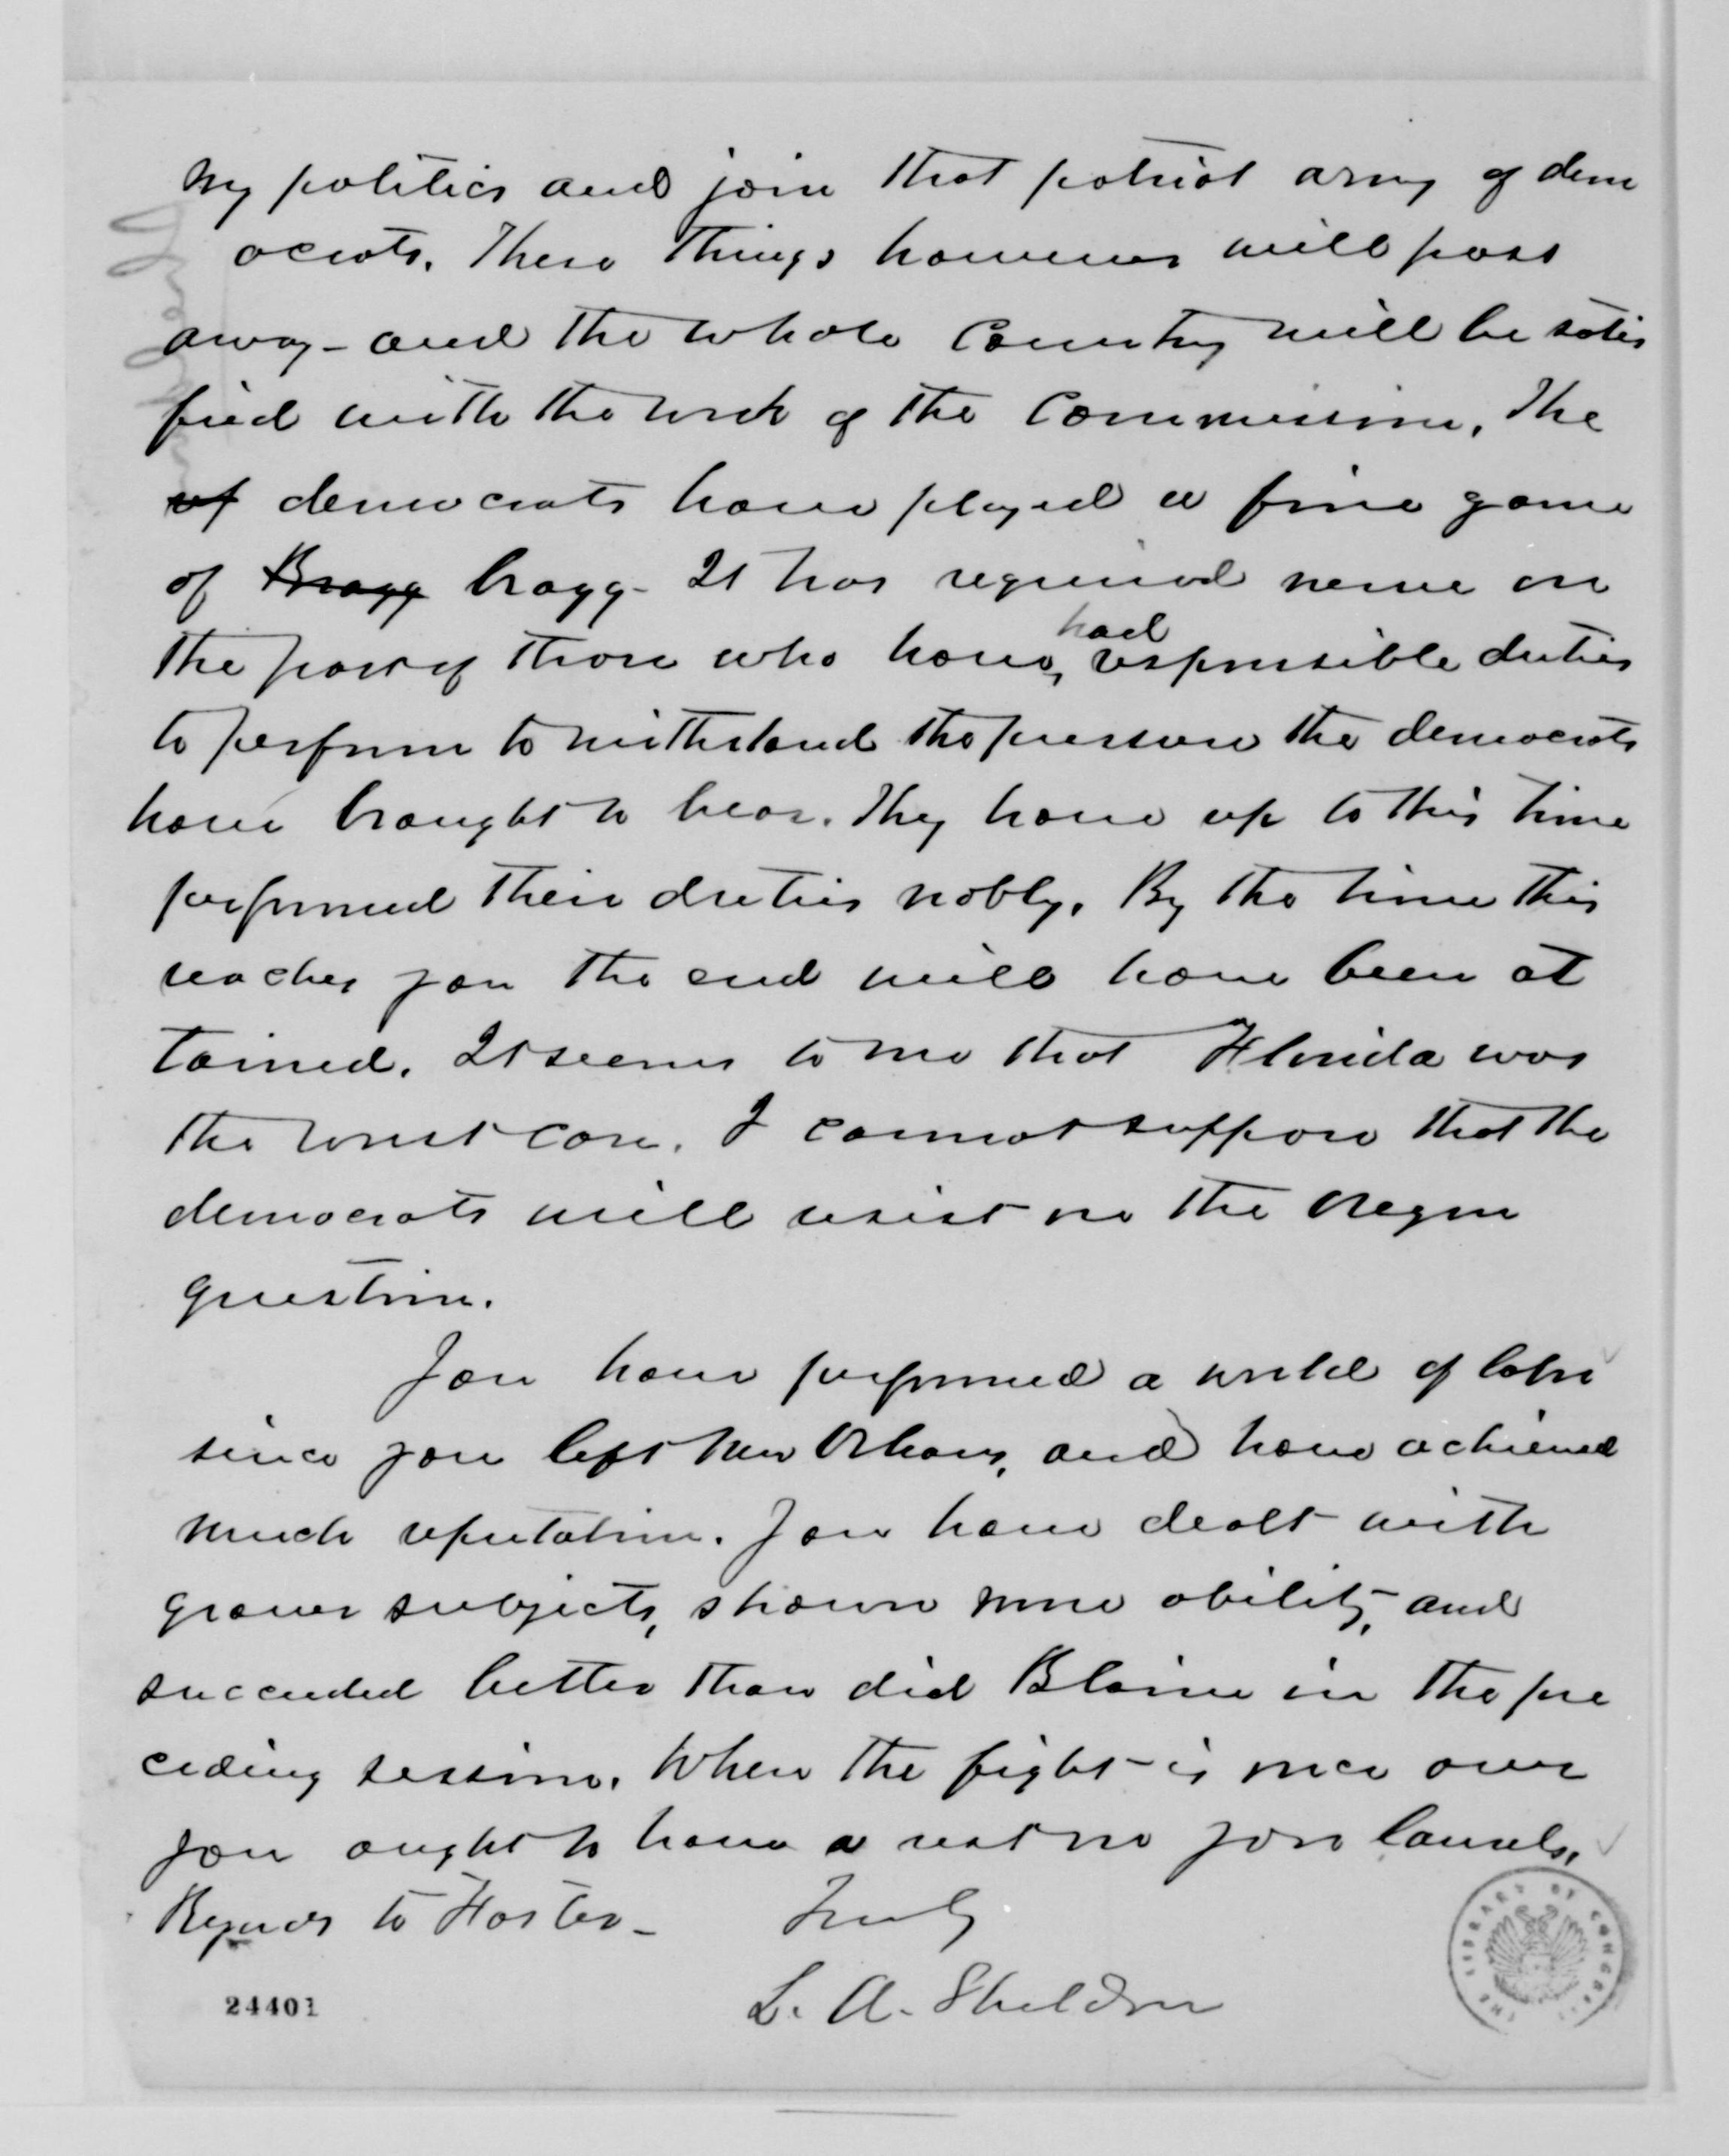 my politics and join that patriot army of dem
ocrats. These things however will pass
away - and the whole Country will be satis
fied with the work of the Commission. The
of democrats have played a fine game
of Bragg bragg - It has required nerve on
the part of those who have had responsible duties
to perform to withstand the pressure the democrats
have brought to bear. They have up to this time
performed their duties nobly. By the time this
reaches you the end will have been at
tained. It seems to me that Florida was
the worst case. I cannot suppose that the
democrats will resist on the Oregon
question.
You have performed a world of labor
since you left New Orleans, and have achieved
much reputation. You have dealt with
graver subjects, shown more ability, and
succeeded better than did Blaine in the pre
ceding session. When the fight is once over
you ought to have a rest on your laurels.
Regards to Foster - Truly
L. A. Sheldon
24401
THE LIBRARY OF CONGRESS